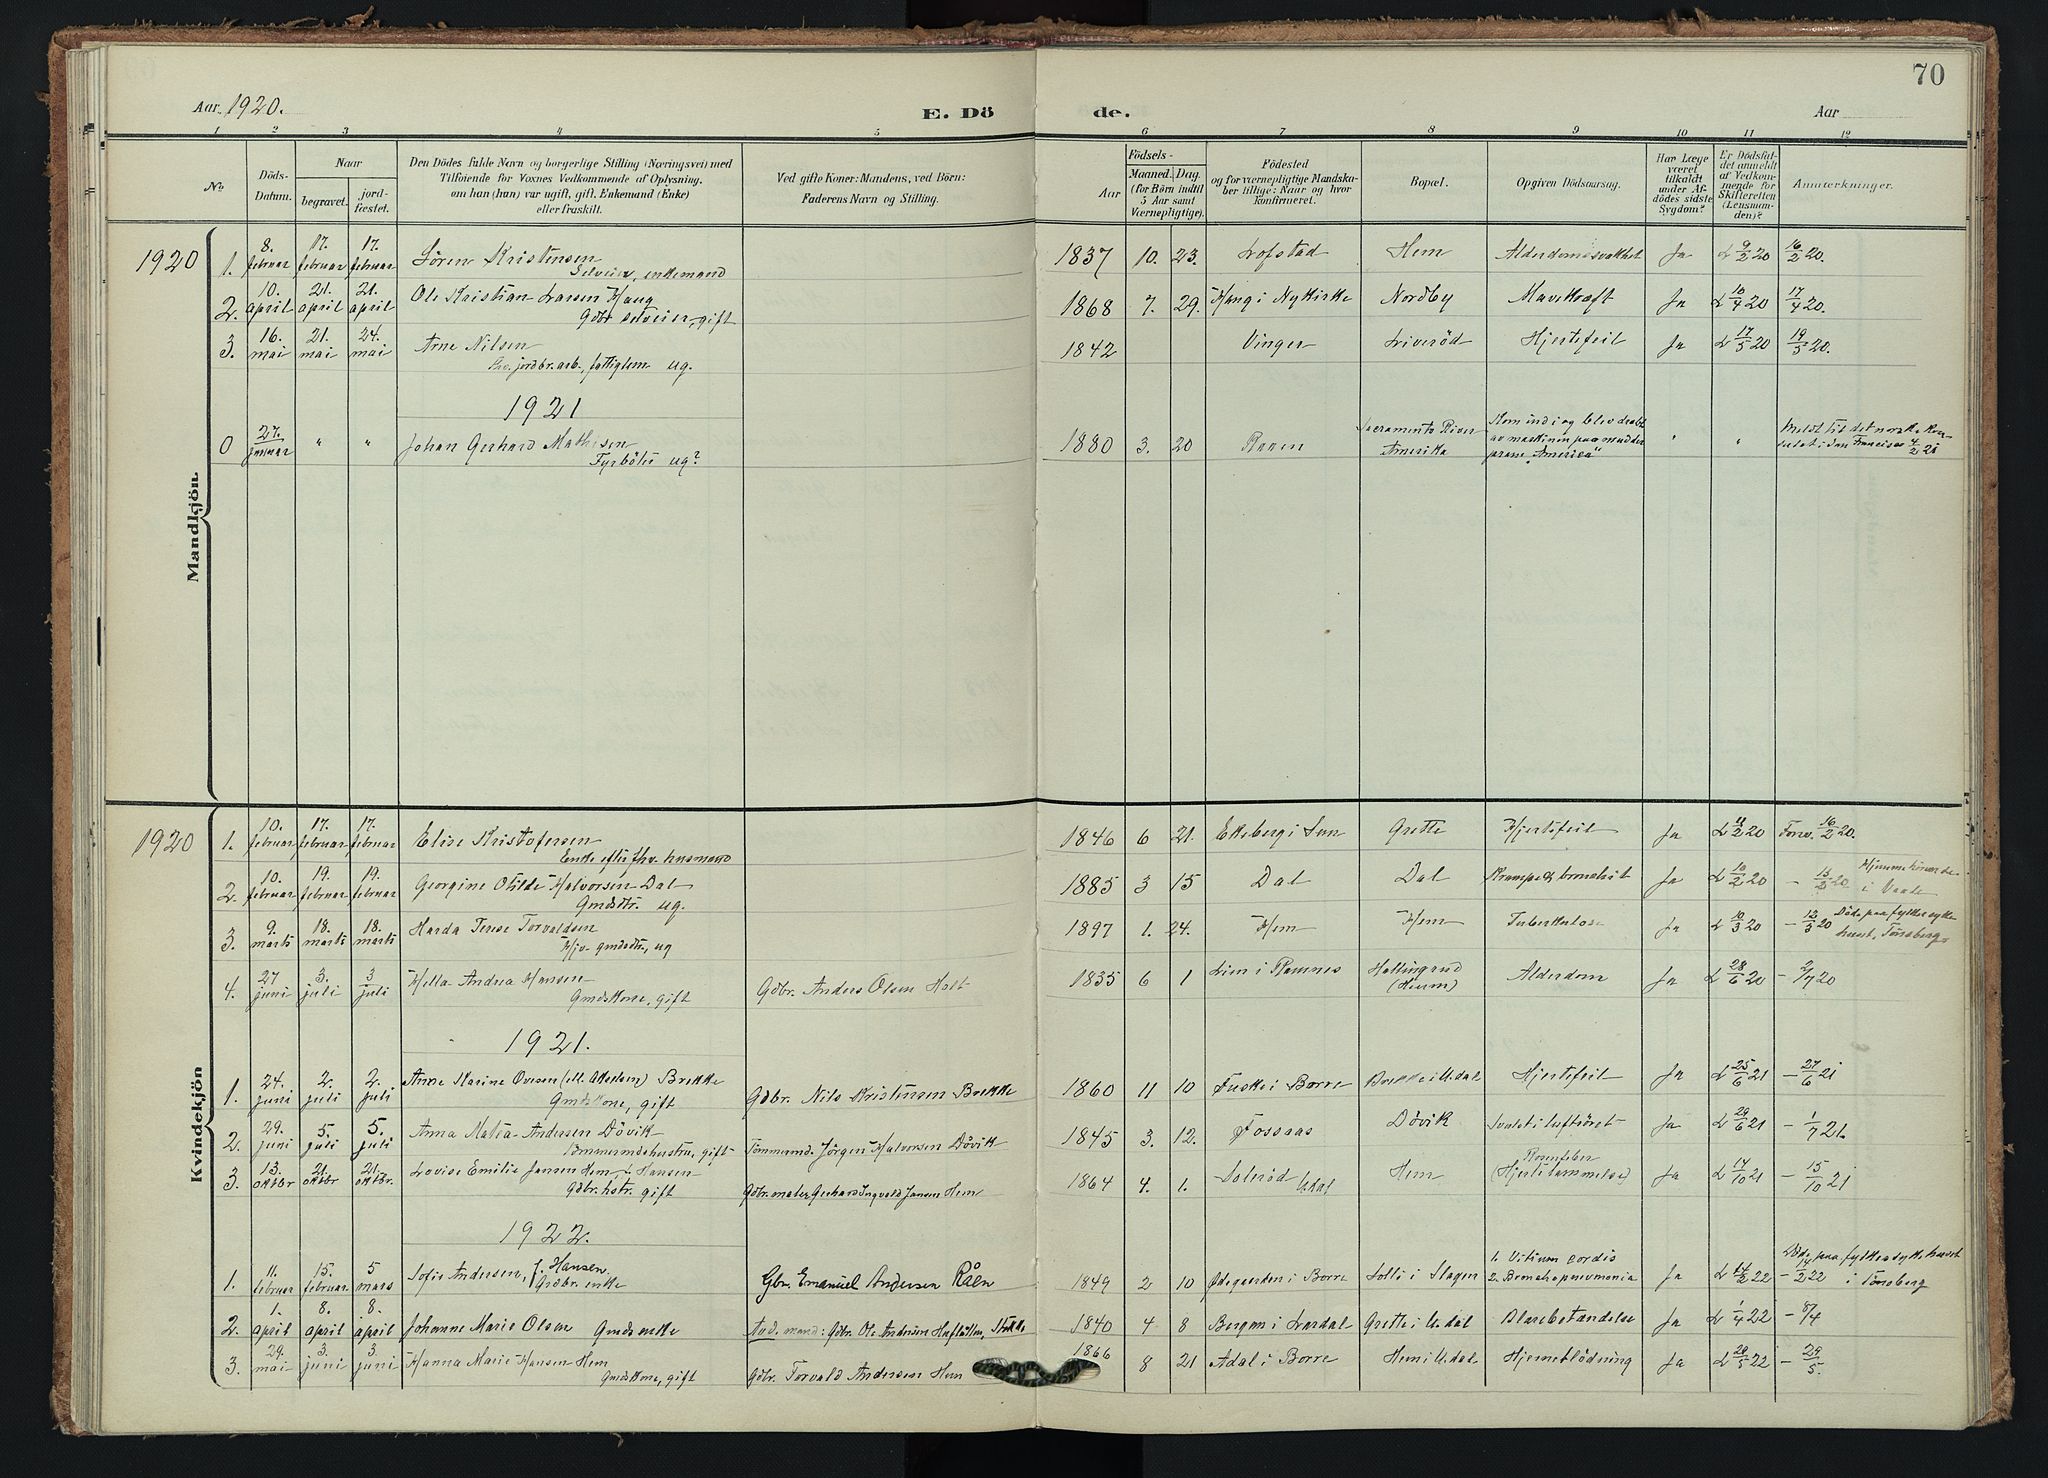 70
Aar 1920.
E. Dö
de.
Aar
1 2 3 4 5 6 7 8 9 10 11 12
No.
Döds-
Datum.
Naar
begravet.
jord-
fæstet.
Den Dödes fulde Navn og borgerlige Stilling (Næringsvei) med
Tilföiende for Voxnes Vedkommende af Oplysning.
om han (hun) var ugift, gift, Enkemand (Enke)
eller fraskilt.
Ved gifte Koner: Mandens, ved Börn:
Faderens Navn og Stilling.
Födsels-
Aar
Maaned. Dag.
(for Börn indtil
5 Aar samt
Værnepligtige).
Födested
og for værnepligtige Mandska-
ber tillige: Naar og hvor
konfirmeret.
Bopæl.
Opgiven Dödsaarsag.
Har Læge
været
tilkaldt
under Af-
dödes sidste
Sygdom?
Er Dödsfal-
det anmeldt
af Vedkom-
mende for
Skifteretten
(Lensman-
den)?
Anmærkninger.
Mandkjön.
1920
1. 8. februar 17. februar 17. februar Sören Kristensen 1837 10. 23. Lofstad Hem Alderdomssvakhet Ja L 9/2 20 16/2 20.
Selveier, enkemand
2. 10. april 21. april 21. april Ole Kristian Larsen Haug 1868 7. 29. Haug i Nykirke Nordby Mavekræft Ja L 10/4 20 17/4 20.
Gdbr selveier, gift
3. 16. mai 21. mai 24. mai Arne Nilsen 1842 Vinger Liveröd Hjertefeil Ja L 17/5 20 19/5 20.
jordbr. arb., fattiglem ug.
1921
0 27. januar " " Johan Gerhard Mathisen 1880 3. 20 Raaen Sacramento River Amerika Kom ind i og blev dræbt av maskinen paa mudder pram "America" " " Meldt til det norske konsulat i San Francisco 4/2 21
Fyrböter ug?
Kvindekjön
1920
1. 10. februar 17. februar 17. februar Elise Kristofersen 1846 6 21. Ekeberg i Grette Hjertefeil Ja L 11/2 20 Forv. 16/2 20.
Enke efter fhv. husmand
2. 10. februar 19. februar 19. februar Georgine Otilde Halvorsen Dal 1885 3 15 Dal Dal Krampe & bronchit Ja L 10/2 20 - 13/2 20 i Vaale
Gmdsdtr. ug.
3. 9. marts 18. marts 18. marts Harda Terese Torvaldsen 1897 1. 24. Hem Hem Tuberkulose Ja L 10/3 20 - 12/3 20 Död paa fylkessykehuset, Tönsberg
gmdsdtr., ug
4. 27 juni 3. juli 3 juli Hella Andrea Hansen Gdbr. Anders Olsen Holt 1835 6 1 Lien i Ramnes Hallingrud (Hem) Alderdom Ja L 28/6 20 - 2/7 20
Gmdskone, gift
1921.
1. 24. juni 2. juli 2. juli Anne Karine Ovesen Brekke Gdbr. Nils Kristensen Brekke 1860 11 10 Fuske i Borre Brekke i U.dal Hjertefeil Ja L 25/6 21 - 27/6 21
Gmdskone, gift
2. 29. juni 5. juli 5. juli Anna Matea Andersen Dövik Tömmermd. Jörgen Halvorsen Dövik 1845 3. 12. Fossaas Dövik Svulst i luftröret Ja L 29/6 21 - 1/7 21.
Tömmermdshustru, gift
3. 13. oktbr 21. oktbr 21. oktbr. Lovise Emilie Jansen Hem f. Hansen Gdbr. maler Gerhard Ingvald Jansen Hem 1864 4. 1. Soleröd U.dal Hem Rosenfeber (Hjertelammelse) Ja L 14/10 21 - 15/10 21
Gdbr. hstr. gift
1922.
1. 11. februar 15. februar 5 mars Sofie Andersen, f. Hansen. Gbr. Emanuel Andersen Råen 1849 2 10 Ödegaarden i Borre Solli i Slagen 1. Vitium cordis 2. Bronchopneumonia Ja L 14/2 22 - 14/2 22 Död paa fylkessykehuset i Tönsberg
Gårdbr. enke
2. 1. april 8. april 8. april Johanne Marie Olsen Gmdsenke Avd. mand: Gdbr. Ole Andersen 1840 4 8 Bergan i Lardal Grette i U.dal Blærebetændelse Ja L 1/4 22 - 8/4
3. 29. mai 3. juni 3. juni Hanna Marie Hansen Hem Gdbr. Torvald Andersen Hem 1866 8 21 Adal i Borre Hem i U.dal Hjerneblödning Ja L 29/5 22 - 29/5.
Gmdskone, gift